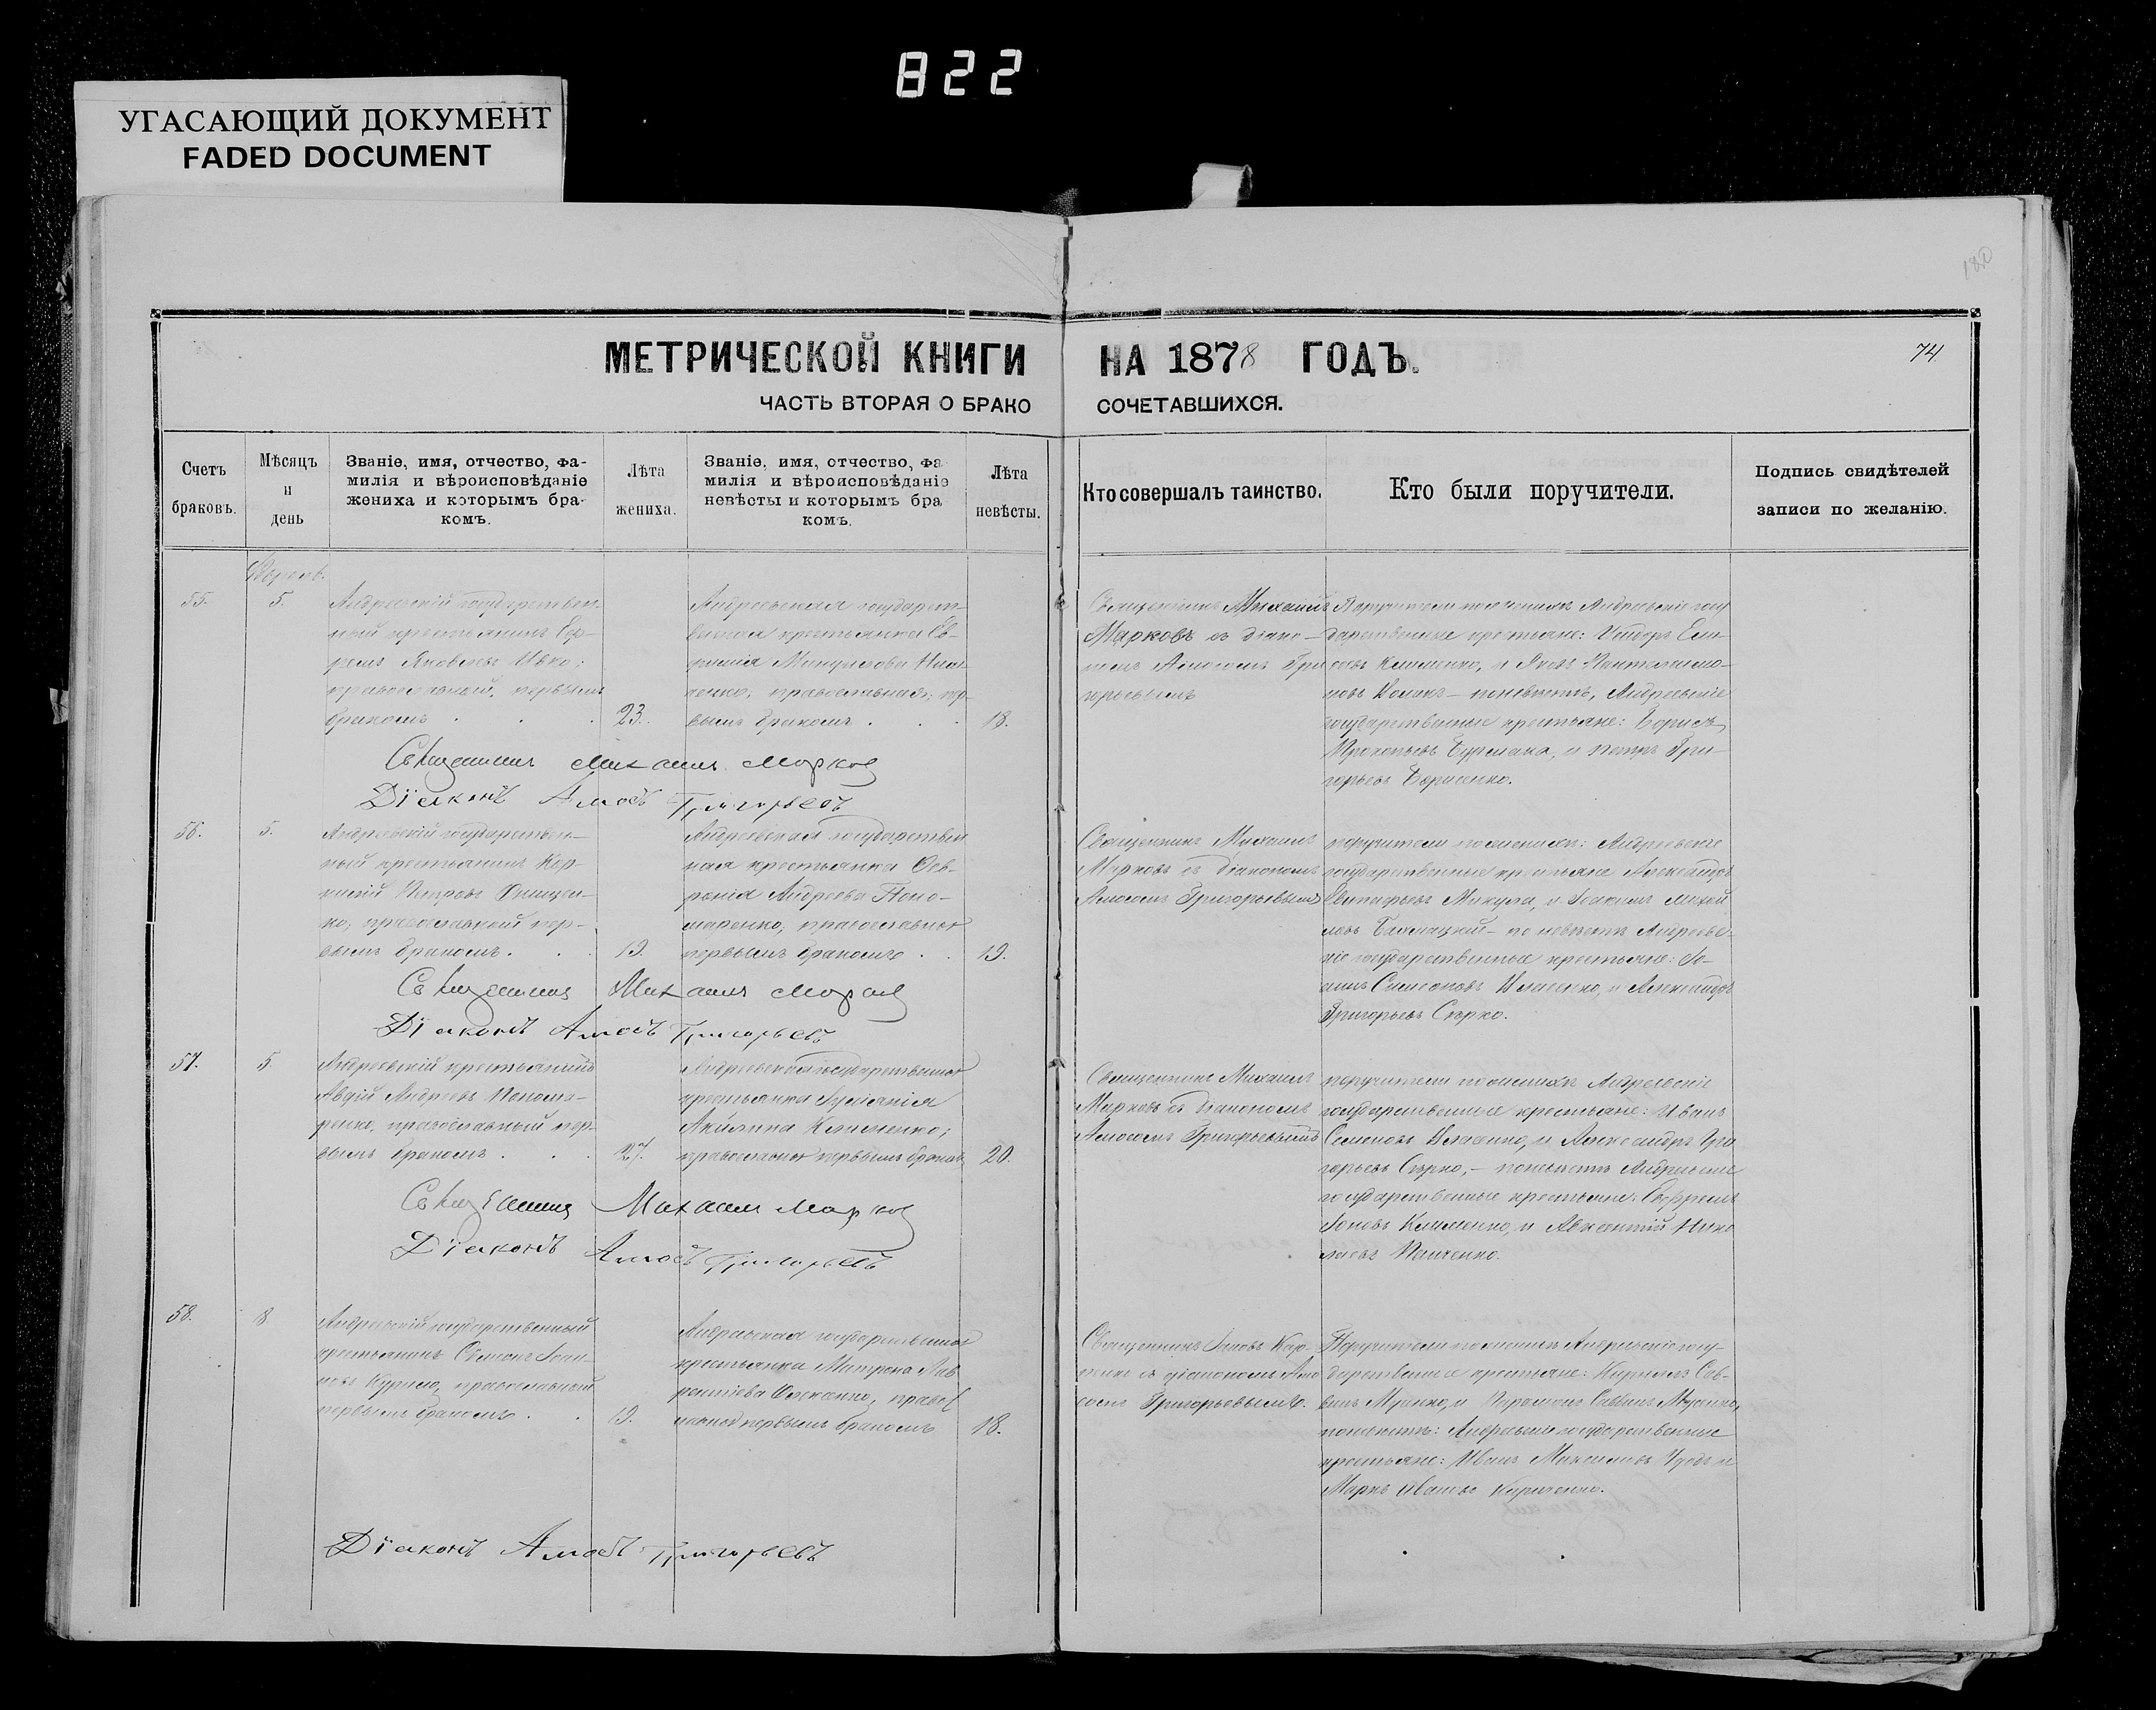 822
УГАСАЮЩИЙ ДОКУМЕНТ
FADED DOCUMENT
180
МЕТРИЧЕСКОЙ КНИГИ НА 1878 ГОДЪ.
74
ЧАСТЬ ВТОРАЯ О БРАКО СОЧЕТАВШИХСЯ.
Счетъ
браковъ.
Мѣсяцъ
и
день
Званіе, имя, отчество, фа-
милія и вѣроисповѣданіе
жениха и которымъ бра-
комъ.
Лѣта
жениха.
Званіе, имя, отчество, фа
милія и вѣроисповѣданіе
невѣсты и которымъ бра
комъ.
Лѣта
невѣсты.
Кто совершалъ таинство.
Кто были поручители.
Подпись свидѣтелей
записи по желанію.
55.
5.
Андреевскій государствен-
ный крестьянинъ Еф-
ремъ Яковлевъ
православный, первымъ
бракомъ
23.
Андреевская государст-
венная крестьянка Ев-
православная, пер-
вымъ бракомъ
18.
Священникъ Михаилъ
Марковъ съ діако-
номъ Амосомъ Гри
горьевымъ
Поручители по женихѣ Андреевскіе госу
дарственные крестьяне:
Клименко, и Яковъ Пантелеимо-
новъ по невѣстѣ, Андреевскіе
государственные крестьяне: Борисъ
Прокопьевъ и Петръ Гри-
горьевъ Борисенко.
Священникъ Михаилъ Марковъ
Діаконъ Амосъ Григорьевъ
56.
5.
Андреевскій государствен-
ный крестьянинъ Кор-
нилій Петровъ Онищен-
ко, православный пер-
вымъ бракомъ.
19.
Андреевская государствен
ная крестьянка Фев-
ронія Андреева Поно-
маренко, православная
первымъ бракомъ
19.
Священникъ Михаилъ
Марковъ съ діакономъ
Амосомъ Григорьевымъ
поручители по женихѣ: Андреевскіе
государственные крестьяне Александръ
Микула, и
по невѣстѣ Андреевс-
кіе государственные крестьяне:
Симеоновъ Власенко, и Александръ
Григорьевъ Сѣрко.
Священникъ Михаилъ Марковъ
Діаконъ Амосъ Григорьевъ
57.
5
Андреевскій крестьянинъ
Авдій Андреевъ Понома-
ренко, православный пер-
вымъ бракомъ
27.
Андреевская государственная
крестьянка
Акилина Клименко;
православная первымъ бракомъ
20.
Священникъ Михаилъ
Марковъ съ діакономъ
Амосомъ Григорьевымъ
поручители по женихѣ Андреевскіе
государственные крестьяне: Иванъ
Семеновъ Власенко, и Александръ Гри
горьевъ Сѣрко, – по невѣстѣ Андреевскіе
государственные крестьяне: Ефремъ
Іоновъ Клименко, и Авксентій Нико
лаевъ
Священникъ Михаилъ Марковъ
Діаконъ Амосъ Григорьевъ
58.
8
Андреевскій государственный
крестьянинъ Симеонъ Іоан-
новъ Курило, православный
первымъ бракомъ
19.
Андреевская государственная
крестьянка Матрона Лав
рентіева правос
лавной первымъ бракомъ
18.
Священникъ Іаковъ
съ діакономъ Амо
сомъ Григорьевымъ.
Поручители по женихѣ Андреевскіе госу-
дарственные крестьяне: Кириллъ Сав-
винъ и Парамонъ Саввинъ
по невѣстѣ: Андреевскіе государственные
крестьяне: Иванъ Максимовъ и
Маркъ Ивановъ Кириченко.
Діаконъ Амосъ Григорьевъ